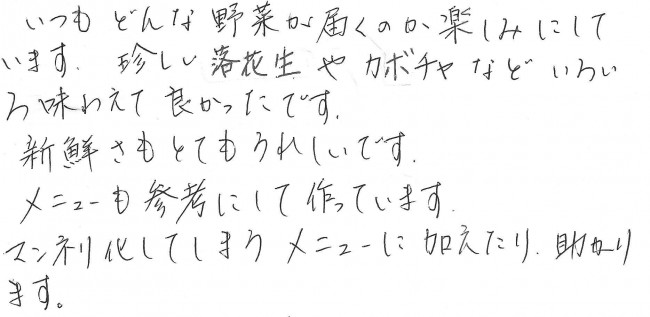 いつも どんな 野菜が届くのか楽しみにして
います. 珍しい 落花生 や カボチャ など いろい
ろ味わえて 良かったです.
新鮮さもとてもうれしいです.
メニューも参考にして作っています.
マンネリ化してしまう メニューに 加えたり. 助かり
ます。